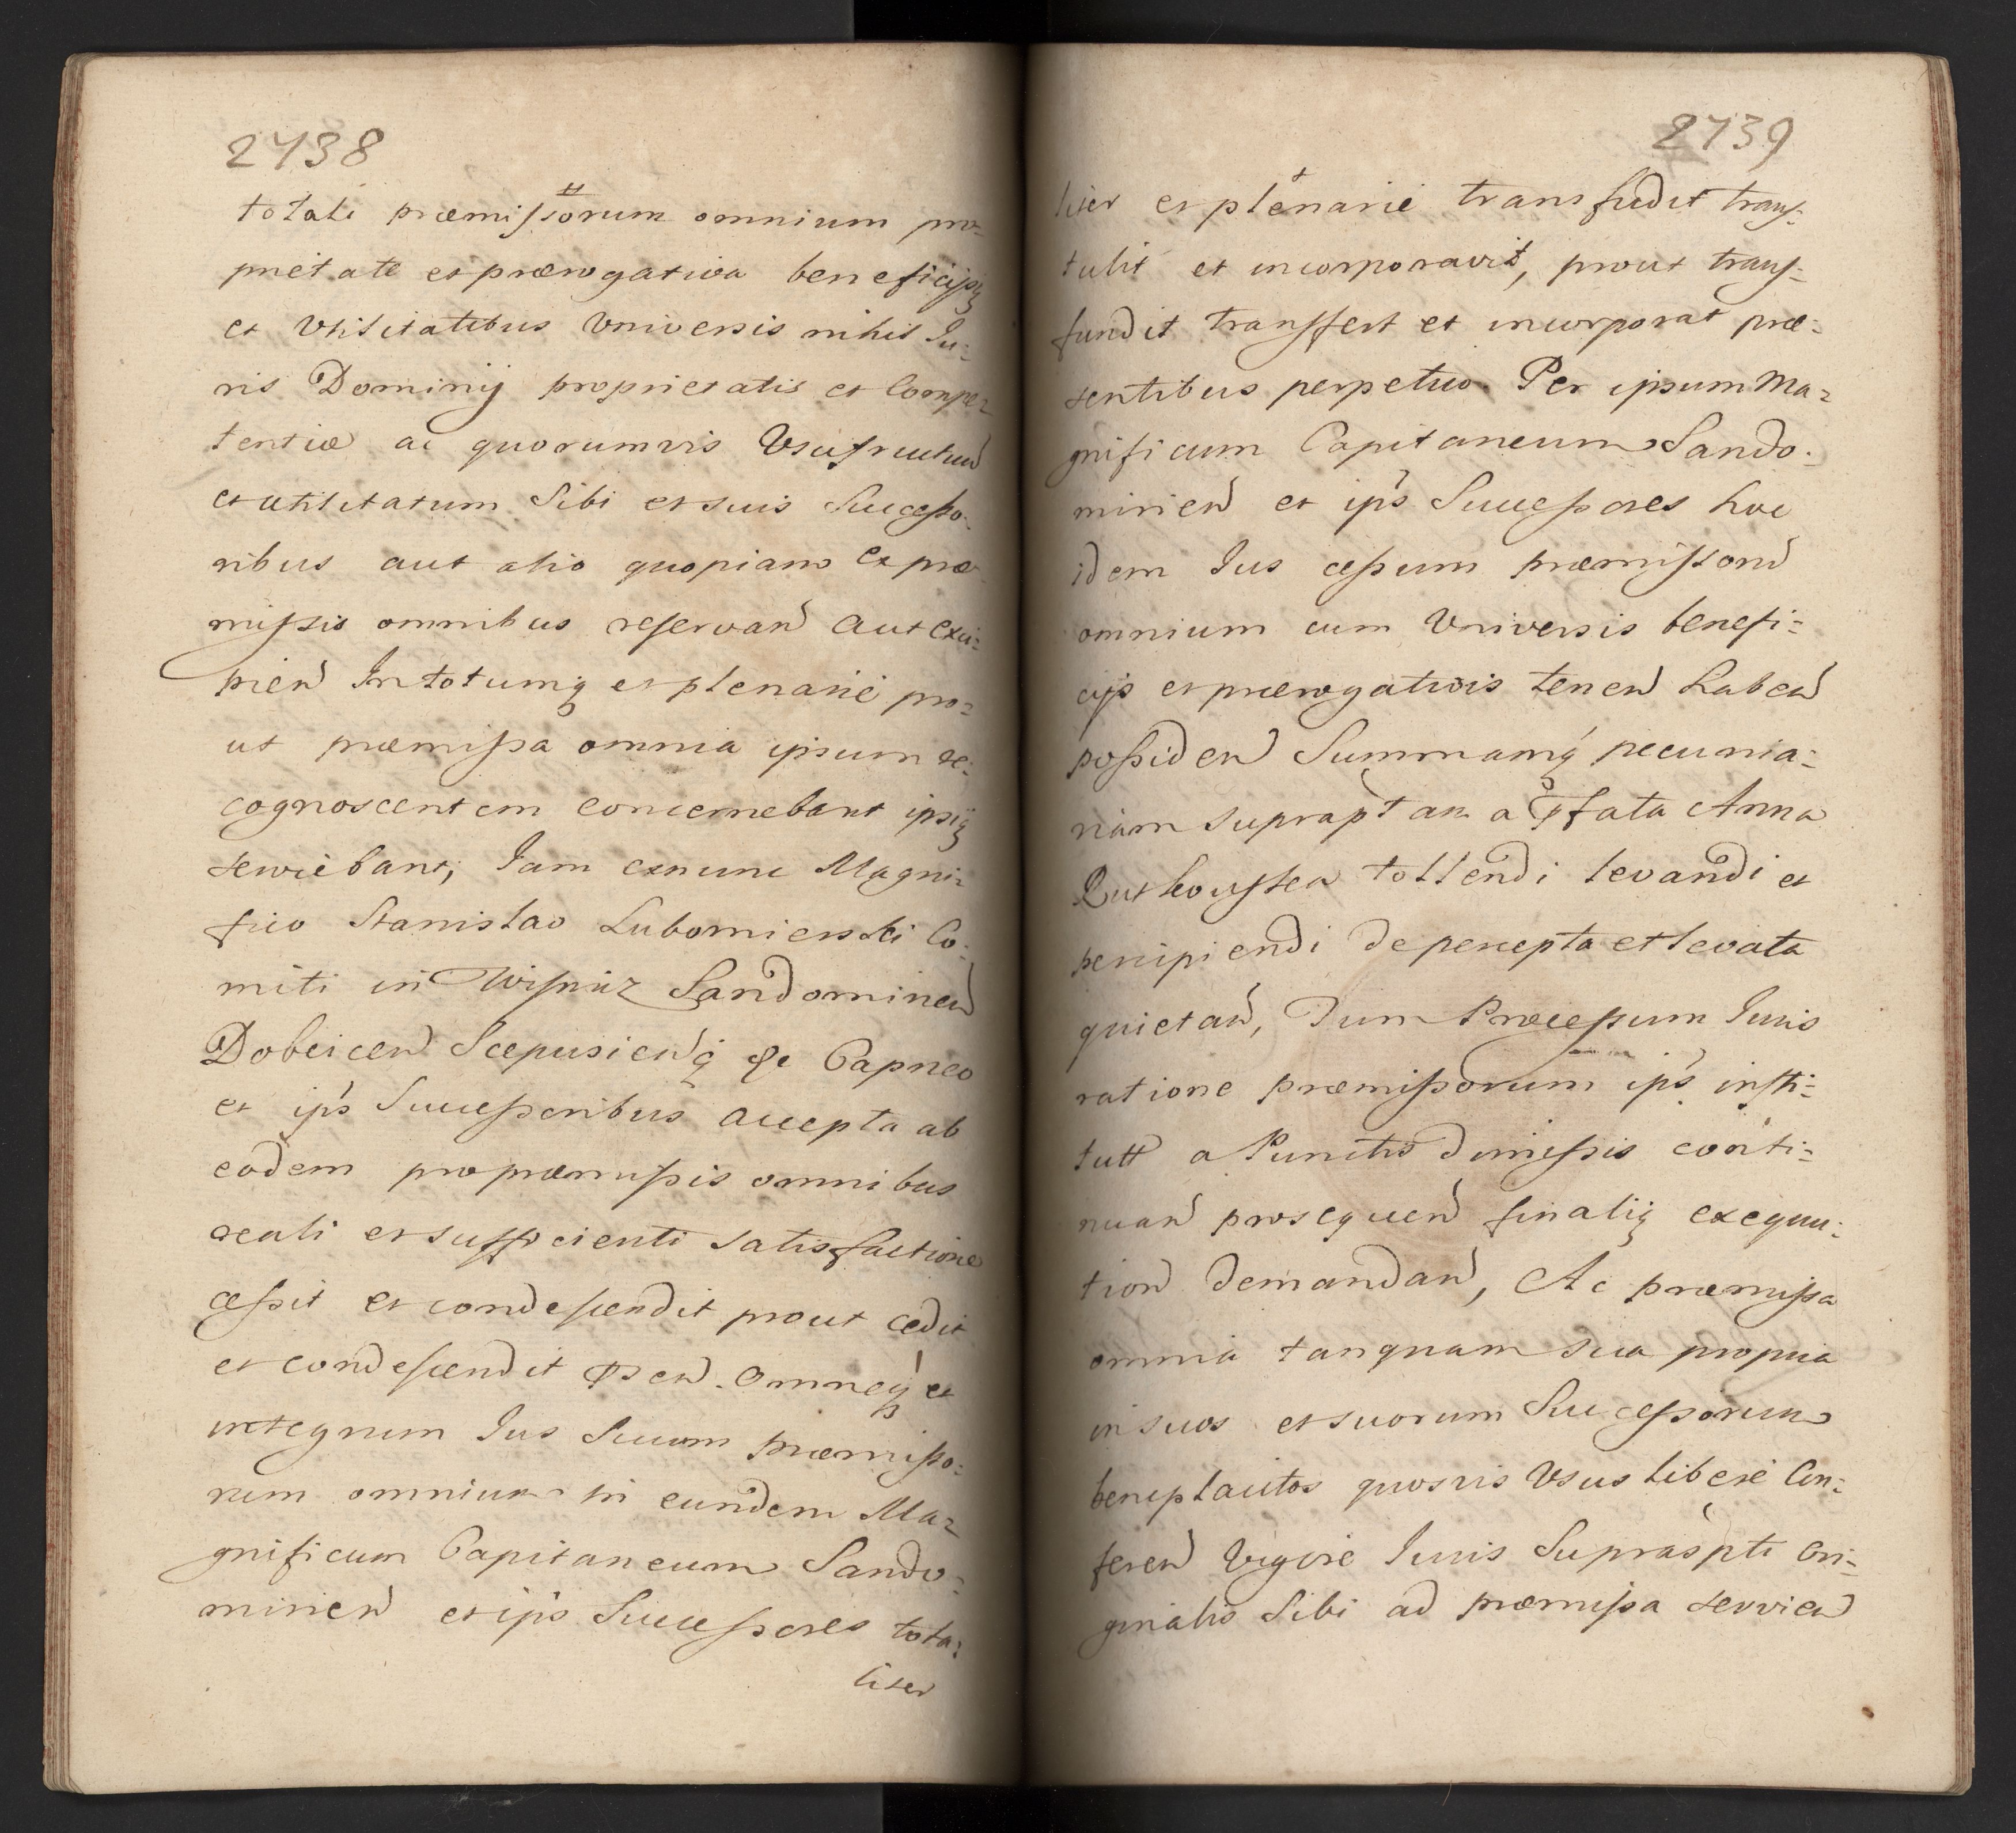 2738
totali præmissorum omnium pro-
prietate et prærogativa beneficijsq
et Vtilitatibus Vniversis nihil Iu-
ris Dominij proprietatis et Compe-
tentiæ ac quorumvis Vsufructuu
et utilitatum Sibi et suis Successo-
ribus aut alio quopiam ex præ-
missis omnibus reservan aut exci-
pien In totumq et plenarié pro-
ut præmissa omnia ipsum re-
cognoscentem concernebant ipsiq
serviebant, Iam exnunc Magni-
fico Stanislao Lubomierski Co-
miti in Wisnicz Sandomirien
Dobcicen Scepusienq &c Capneo
et ips Successoribus accepta ab
eodem pro præmissis omnibus
reali et sufficienti satisfactione
cessit et condescendit prout cedit
et condescendit psen. Omneq et
integrum Ius Suum præmisso-
rum omnium in eundem Ma-
gnificum Capitaneum Sando-
mirien et ips Successores tota-
liter
2739
liter et plenarié transfudit trans-
tulit et incorporavit, prout trans-
fundit transfert et incorporat præ-
sentibus perpetuo. Per ipsum Ma-
gnificum Capitaneum Sando-
mirien et ips Successores hoc
idem Ius cessum præmissorum
omnium cum Vniversis benefi-
cijs et prærogativis tenen haben
possiden Summamq pecunia-
riam supraptam a pfata Anna
Rutkowska tollendi levandi et
percipiendi de percepta et levata
quietan, Tum Processum Iuris
ratione præmissorum ips insti-
tutt a Punctis dimissis conti-
nuan prosequen finaliq exequu-
tion demandan, Ac præmissa
omnia tanquam sua propria
in suos et suorum Successorum
beneplacitos quosvis Vsus liberé Con-
feren Vigore Iuris Suprapti Ori-
ginalis Sibi ad præmissa servien